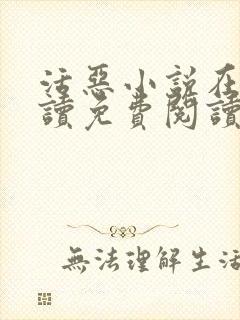 活惡小說在
讀免費閱讀
無法理解生活